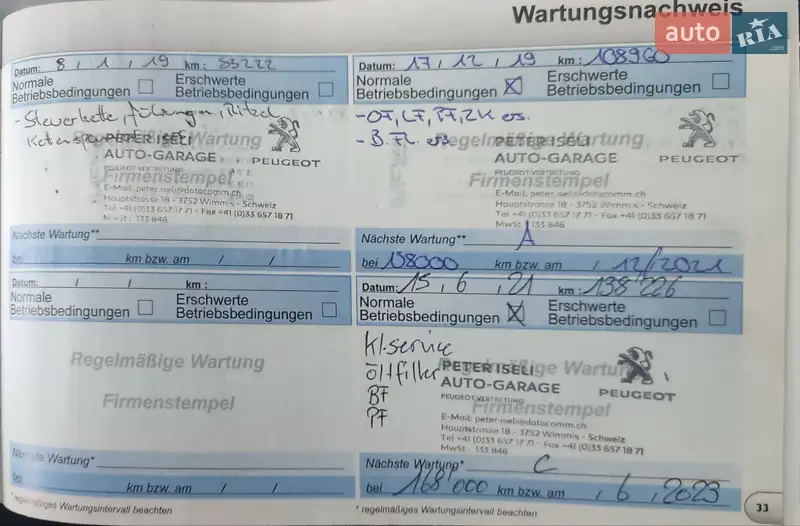 Wartungsnachweis
auto RIA.com
Datum: 8 / 1 / 19 km: 83222
Normale Betriebsbedingungen
Erschwerte Betriebsbedingungen
- Steuerkette, Führungen, Ritzel
Kettenspanner
Regelmäßige Wartung
PETER ISELI
AUTO-GARAGE
PEUGEOT VERTRETUNG
Firmenstempel
E-Mail: peter.iseli@datacomm.ch
Hauptstrasse 18 - 3752 Wimmis - Schweiz
Tel +41 (0)33 657 17 71 - Fax +41 (0)33 657 18 71
MwSt.: 133 846
PEUGEOT
Nächste Wartung**
bei km bzw. am / /
Datum: 17 / 12 / 19 km: 108960
Normale Betriebsbedingungen X
Erschwerte Betriebsbedingungen
- OF, LF, PF, ZK ers.
- B.Fl. ers.
Regelmäßige Wartung
PETER ISELI
AUTO-GARAGE
PEUGEOT VERTRETUNG
Firmenstempel
E-Mail: peter.iseli@datacomm.ch
Hauptstrasse 18 - 3752 Wimmis - Schweiz
Tel +41 (0)33 657 17 71 - Fax +41 (0)33 657 18 71
MwSt.: 133 846
PEUGEOT
Nächste Wartung** A
bei 138000 km bzw. am / 12/2021
Datum: / / km:
Normale Betriebsbedingungen
Erschwerte Betriebsbedingungen
Regelmäßige Wartung
Firmenstempel
Nächste Wartung*
bei km bzw. am / /
*regelmäßiges Wartungsintervall beachten
Datum: 15, 6, 21 km: 138'226
Normale Betriebsbedingungen X
Erschwerte Betriebsbedingungen
Kl.service
ölfilter
BF
PF
Regelmäßige Wartung
PETER ISELI
AUTO-GARAGE
PEUGEOT VERTRETUNG
Firmenstempel
E-Mail: peter.iseli@datacomm.ch
Hauptstrasse 18 - 3752 Wimmis - Schweiz
Tel +41 (0)33 657 17 71 - Fax +41 (0)33 657 18 71
MwSt.: 133 846
PEUGEOT
Nächste Wartung* C
bei 168'000 km bzw. am , 6, 2023
* regelmäßiges Wartungsintervall beachten
33